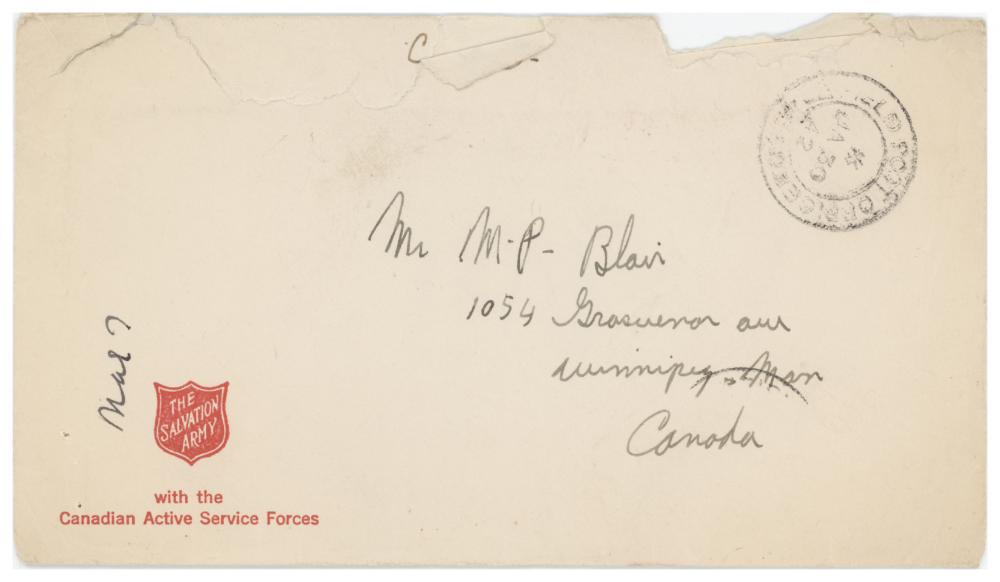 FIELD POST OFFICE
JA 30
42
Mr M-P- Blair
1054 Grosvenor ave
Winnipeg. Man
Canada
Mar 7
THE
SALVATION
ARMY
with the
Canadian Active Service Forces